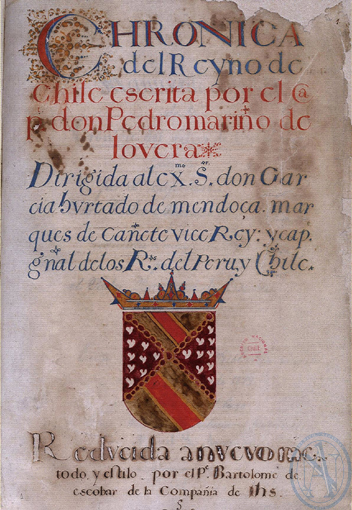 CHRONICA
del Reyno de
Chile escrita por el c@
p. don Pedro mariño de
lovera
Dirigida al ex.mo S.or don Gar
cia hurtado de mendoça. mar
ques de cañete vice Rey: y cap.
g͠nal de los R.s del Peru, y Chile.
Reducida a nuevo me
todo, y estilo. por el P.e Bartolome de
escobar de la Compañia de Ihs.